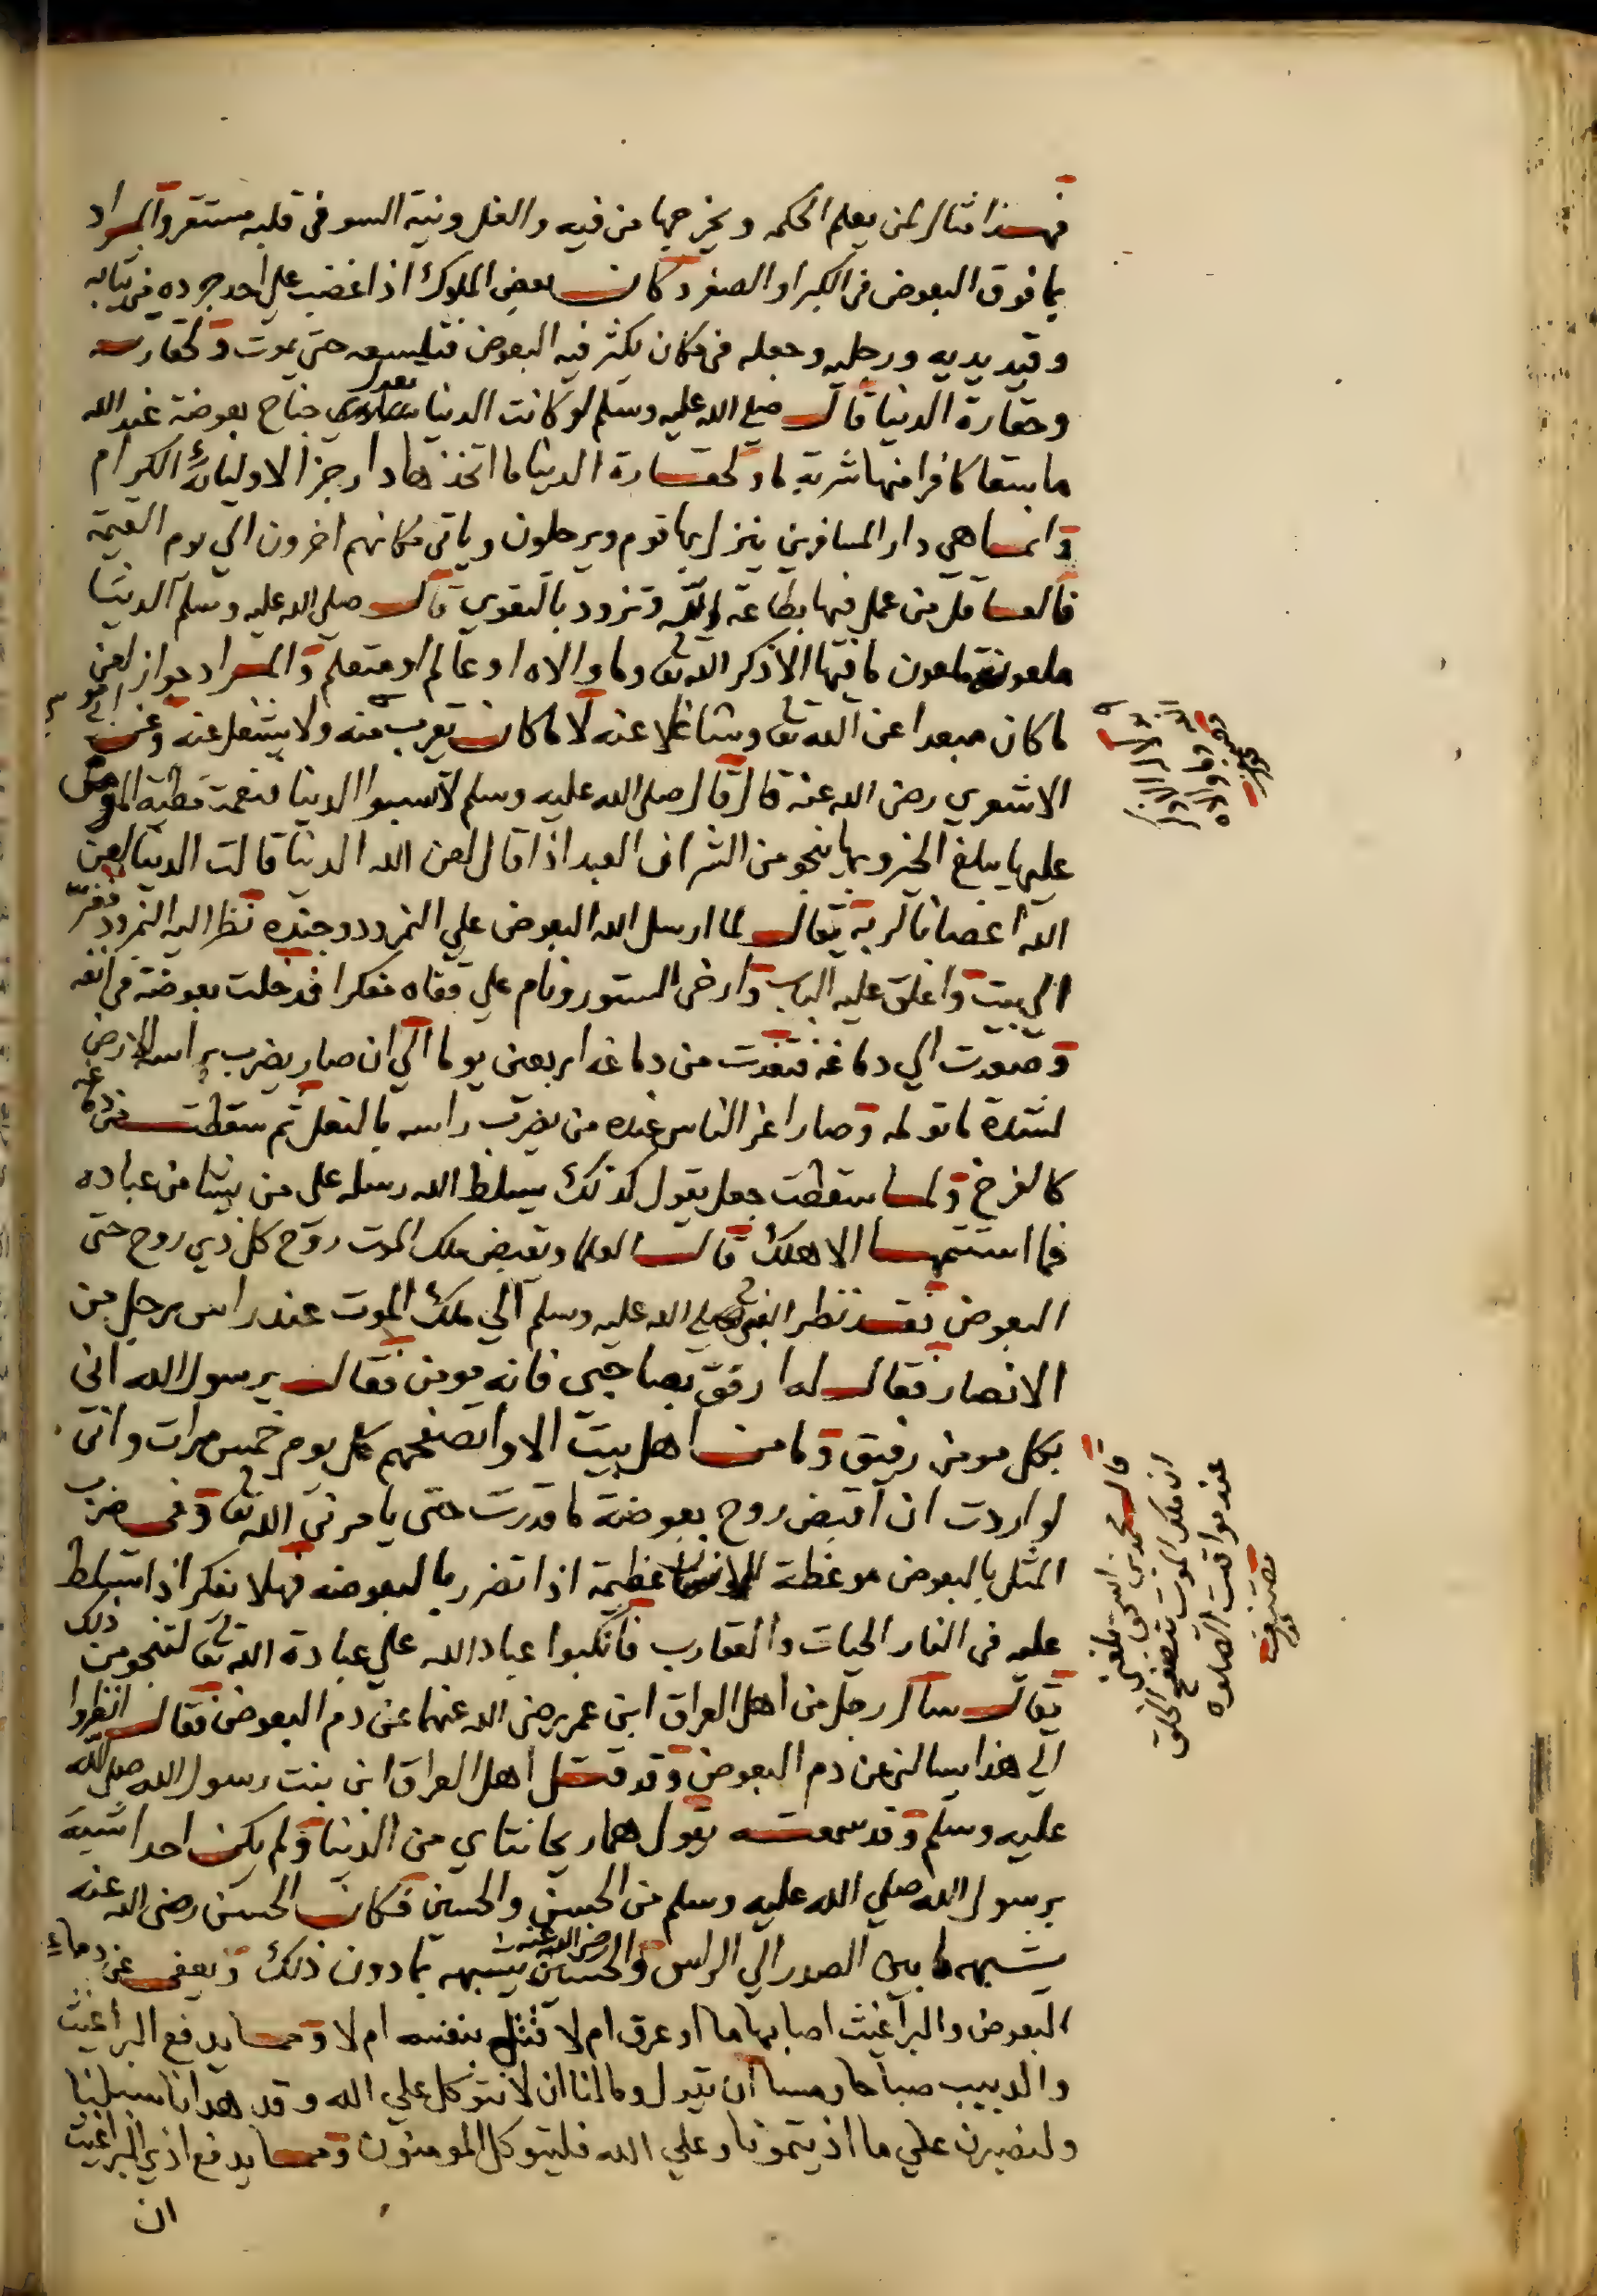 فهذا مثال لمن يعلم الحكمه ويخرجها من فيه والغل ونية السو في قلبه مستقر والمراد
بما فوق البعوض في الكبر او الصغر وكان بعض الملوك اذا غضب علي احد جرده من ثيابه
وقيد يديه ورجليه وجعله في مكان يكثر فيه البعوض فتلسعه حتي يموت ولحقارته
وحقارة الدنيا قال صلي الله عليه وسلم لو كانت الدنيا تعدل جناح بعوضة عند الله
ما سقا كافرا منها شربة ما ولحقارة الدنيا ما اتخذها دار جزا لاوليائه الكرام
وانما هي دار المسافرين ينزل بها قوم ويرحلون وياتي مكانهم اخرون الي يوم القيمة
فالعاقل من عمل فيها بطاعة الله وتزود بالتقوي قال صلي الله عليه وسلم الدنيا
ملعونة ملعون ما فيها الا ذكر الله تعا وما والاه او عالم او متعلم والمراد جواز لعن
ما كان مبعدا عن الله تعا وشاغلا عنه لا ما كان يقرب منه ولا يشغل عنه وعن ابي موسي
الاشعري رضي الله عنه قال قال صلي الله عليه وسلم لا تسبوا الدنيا فنعمت مطية المومن
عليها يبلغ الخير وبها ينجو من الشر ان العبد اذا قال لعن الله الدنيا قالت الدنيا لعن
الله اعصانا لربه يقال لما ارسل الله البعوض علي النمرود وجنده نظر اليه النمرود ففر
الي بيت واغلق عليه الباب وارخي الستور ونام علي قفاه مفكرا فدخلت بعوضة في انفه
وصعدت الي دماغه فتغدت من دماغه اربعين يوما الي ان صار يضرب براسه الارض
لشدة ما تولمه وصار اعز الناس عنده من يضرب راسه بالنعل ثم سقطت من دماغه
كالفرخ ولما سقطت جعل يقول كذلك يسلط الله رسله علي من يشا من عباده
فما استتمها الا هلك قالت العلما ويقبض ملك الموت روح كل ذي روح حتي
البعوض فقد نظر النبي صلي الله عليه وسلم الي ملك الموت عند راس رجل من
الانصار فقال له ارفق بصاحبي فانه مومن فقال يرسول الله اني
بكل مومن رفيق وما من اهل بيت الا واتصفحهم كل يوم خمس مرات واني
لو اردت ان اقبض روح بعوضة ما قدرت حتي يامرني الله تعا وفي ضرب
المثل بالبعوض موعظة للانسان عظيمة اذا تضرر بالبعوضه فهلا تفكر اذا تسلط
عليه في النار الحيات والعقارب فانكبوا عباد الله علي عبادة الله تعا لتنجو من ذلك
يقال سال رجل من اهل العراق ابن عمر رضي الله عنهما عن دم البعوض فقال انظروا
الي هذا يسالني عن دم البعوض وقد قتل اهل العراق ابن بنت رسول الله صلي الله
عليه وسلم وقد سمعته يقول هما ريحانتاي من الدنيا ولم يكن احدا شبيه
برسول الله صلي الله عليه وسلم من الحسن والحسين فكان الحسن رضي الله عنه
يشبهه ما بين الصدر الي الراس والحسين رضي الله عنه يشبهه بما دون ذلك ويعفي عن دماء
البعوض والبراغيث اصابها ما او عرق ام لا قتل بنفسه ام لا ومما يدفع البراغيث
والدبيب صباحا ومسا ان يقول وما لنا ان لا نتوكل علي الله وقد هدانا سبلنا
ولنصبرن علي ما اذيتمونا وعلي الله فليتوكل المومنون ومما يدفع اذي البراغيث
ان
قال محمد بن
ان ملك الموت يتصفح الخلق
عند مواقيت الصلوه